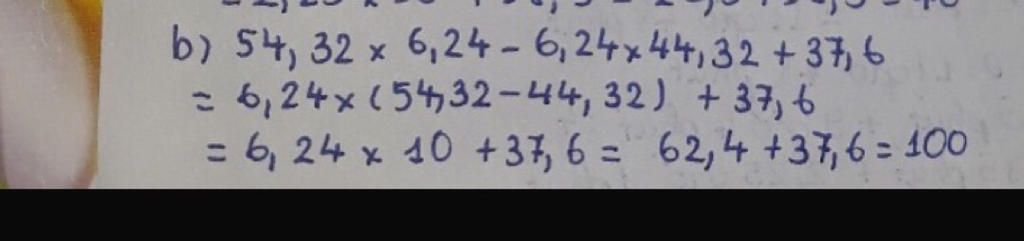 b) 54,32 x 6,24 - 6,24 x 44,32 + 37,6
= 6,24 x (54,32 - 44,32) + 37,6
= 6,24 x 10 + 37,6 = 62,4 + 37,6 = 100